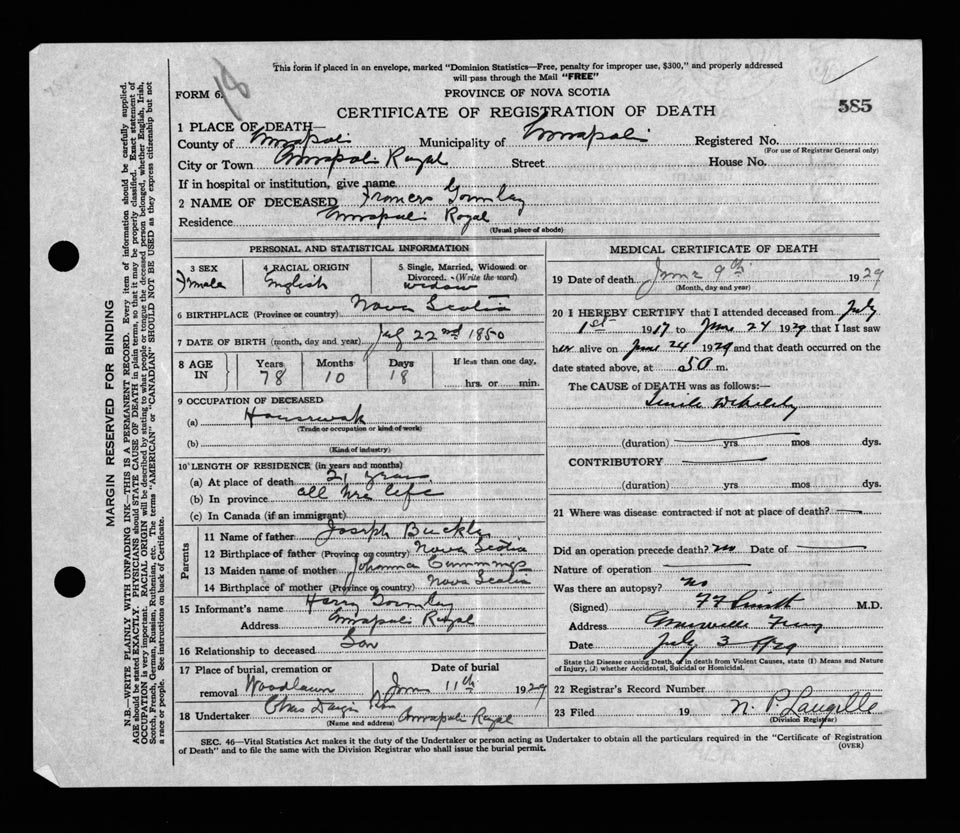 18
This form if placed in an envelope, marked "Dominion Statistics—Free, penalty for improper use, $300," and properly addressed
will pass through the Mail "FREE"
FORM 6.
PROVINCE OF NOVA SCOTIA
CERTIFICATE OF REGISTRATION OF DEATH
585
1 PLACE OF DEATH—
County of Annapolis Municipality of Annapolis Registered No.
(For use of Registrar General only)
City or Town Annapolis Royal Street House No.
If in hospital or institution, give name
2 NAME OF DECEASED Frances Gormley
Residence Annapolis Royal
(Usual place of abode)
PERSONAL AND STATISTICAL INFORMATION
3 SEX
Female
4 RACIAL ORIGIN
English
5 Single, Married, Widowed or
Divorced. (Write the word)
Widow
6 BIRTHPLACE (Province or country) Nova Scotia
7 DATE OF BIRTH (month, day and year) July 22nd 1850
8 AGE
IN
Years
78
Months
10
Days
18
If less than one day,
hrs. or min.
9 OCCUPATION OF DECEASED
(a) Housework
(Trade or occupation or kind of work)
(b)
(Kind of industry)
10 LENGTH OF RESIDENCE (in years and months)
(a) At place of death 21 years
(b) In province all her life
(c) In Canada (if an immigrant)
Parents
11 Name of father Joseph Buckly
12 Birthplace of father (Province or country) Nova Scotia
13 Maiden name of mother Johanna Cummings
14 Birthplace of mother (Province or country) Nova Scotia
15 Informant's name Harry Gormley
Address Annapolis Royal
16 Relationship to deceased Son
17 Place of burial, cremation or
removal Woodlawn
Date of burial
June 11th 1929
18 Undertaker Chas & Son
(Name and address) Annapolis Royal
MEDICAL CERTIFICATE OF DEATH
19 Date of death June 9th 1929
(Month, day and year)
20 I HEREBY CERTIFY that I attended deceased from July
1st 1917 to June 24 1929 that I last saw
her alive on June 24 1929 and that death occurred on the
date stated above, at m.
The CAUSE of DEATH was as follows:—
Senile Debility
(duration) yrs mos dys.
CONTRIBUTORY
(duration) yrs. mos dys.
21 Where was disease contracted if not at place of death?
Did an operation precede death? no Date of
Nature of operation
Was there an autopsy? No
(Signed) Smith M.D.
Address Granville Ferry
Date July 3 1929
State the Disease causing Death, or in death from Violent Causes, state (1) Means and Nature
of Injury, (2) whether Accidental, Suicidal or Homicidal.
22 Registrar's Record Number
23 Filed 19 N. P. Langille
(Division Registrar)
SEC. 46—Vital Statistics Act makes it the duty of the Undertaker or person acting as Undertaker to obtain all the particulars required in the "Certificate of Registration
of Death" and to file the same with the Division Registrar who shall issue the burial permit.
(OVER)
MARGIN RESERVED FOR BINDING
N.B.—WRITE PLAINLY WITH UNFADING INK—THIS IS A PERMANENT RECORD. Every item of information should be carefully supplied.
AGE should be stated EXACTLY. PHYSICIANS should STATE CAUSE OF DEATH in plain terms, so that it may be properly classified. Exact statement of
OCCUPATION is very important. RACIAL ORIGIN will be described by stating to what people or tongue the deceased person belonged, whether English, Irish,
Scotch, French, German, Russian, Ruthenian, etc. The terms "AMERICAN" or "CANADIAN" SHOULD NOT BE USED as they express citizenship but not
a race or people. See instructions on back of Certificate.